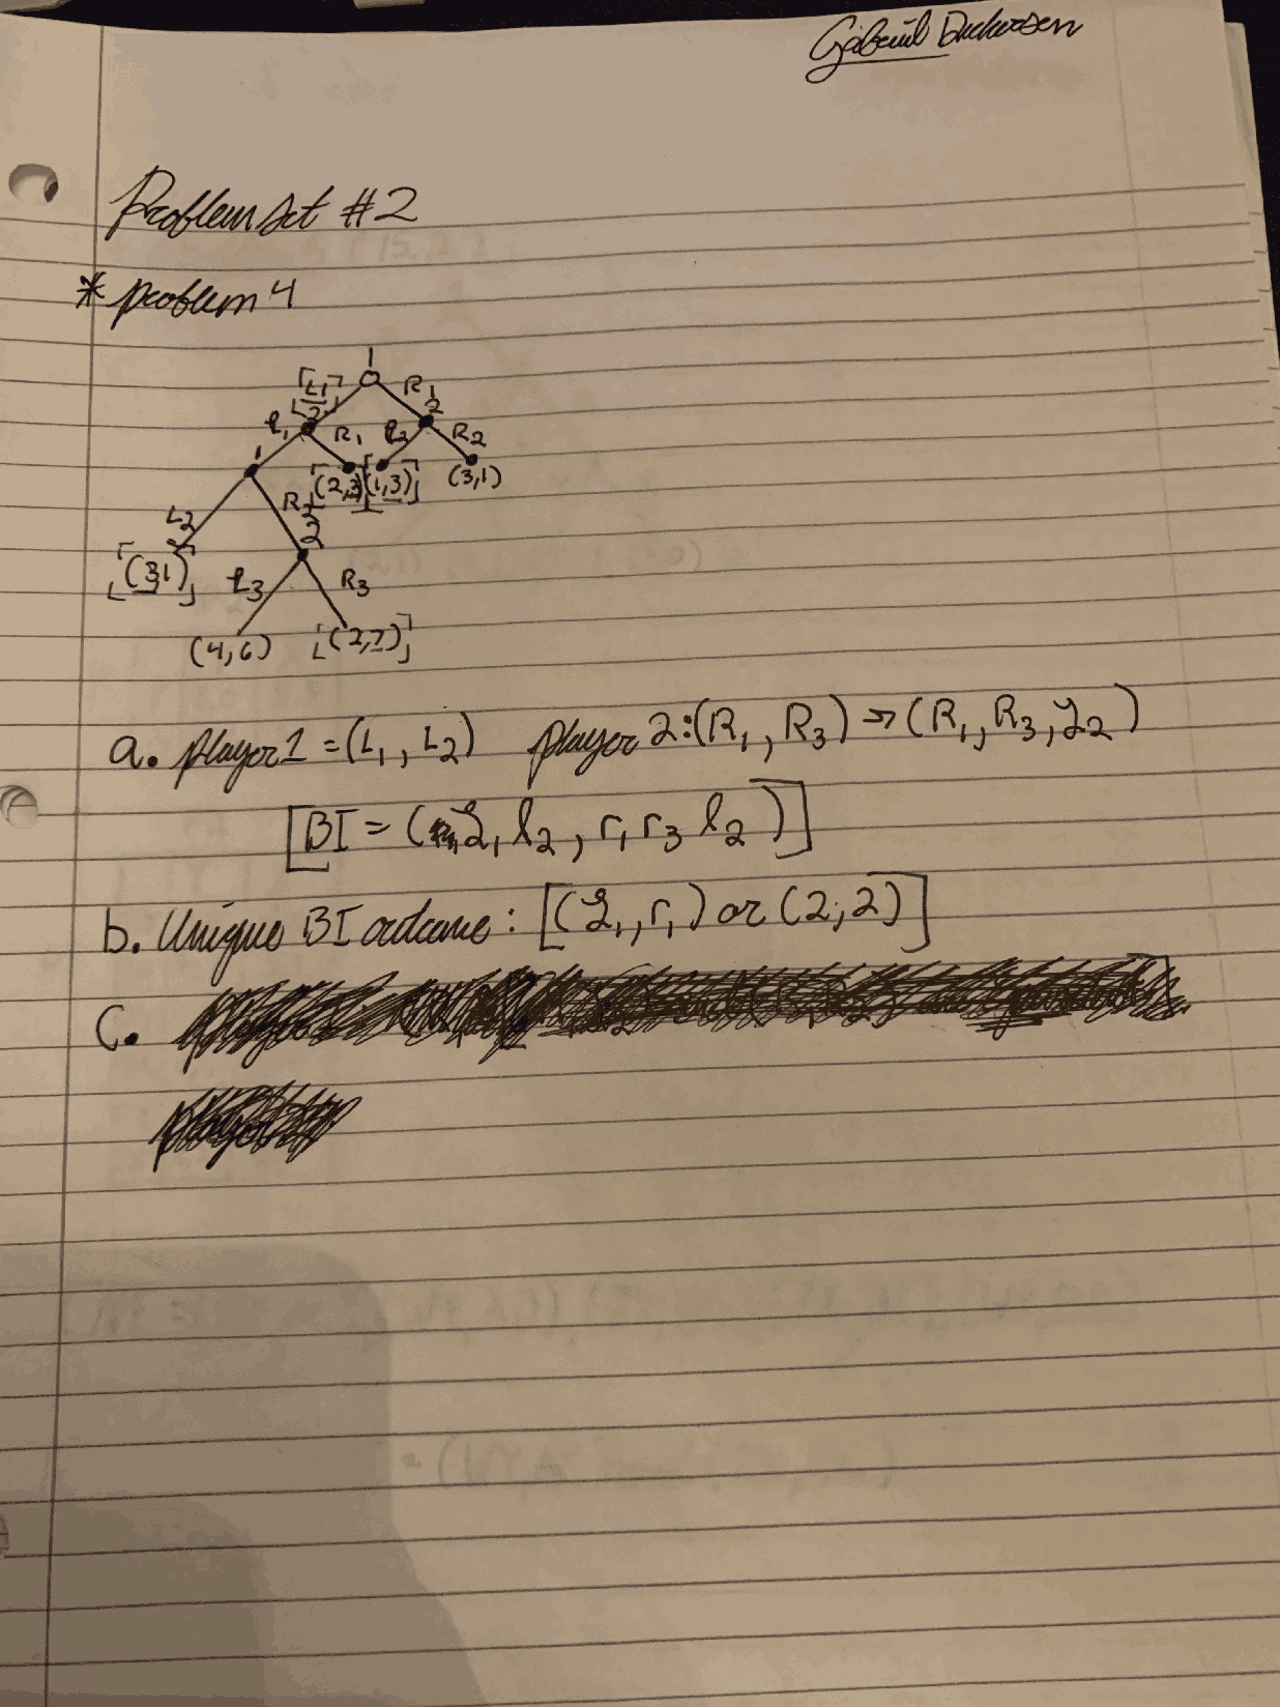 Gabriel Dickerson
Problem Set #2
* problem 4
1
[L1] R1
2 2
l1 R1 l2 R2
1
[(2,3)] [(1,3)] (3,1)
L2 R2
2
[(3,1)] l3 R3
(4,6) [(2,7)]
a. player 1 = (L1, L2) player 2: (R1, R3) → (R1, R3, L2)
[BI = (L1 l2, r1 r3 l2)]
b. Unique BI outcome: [(L1, r1) or (2,2)]
C.